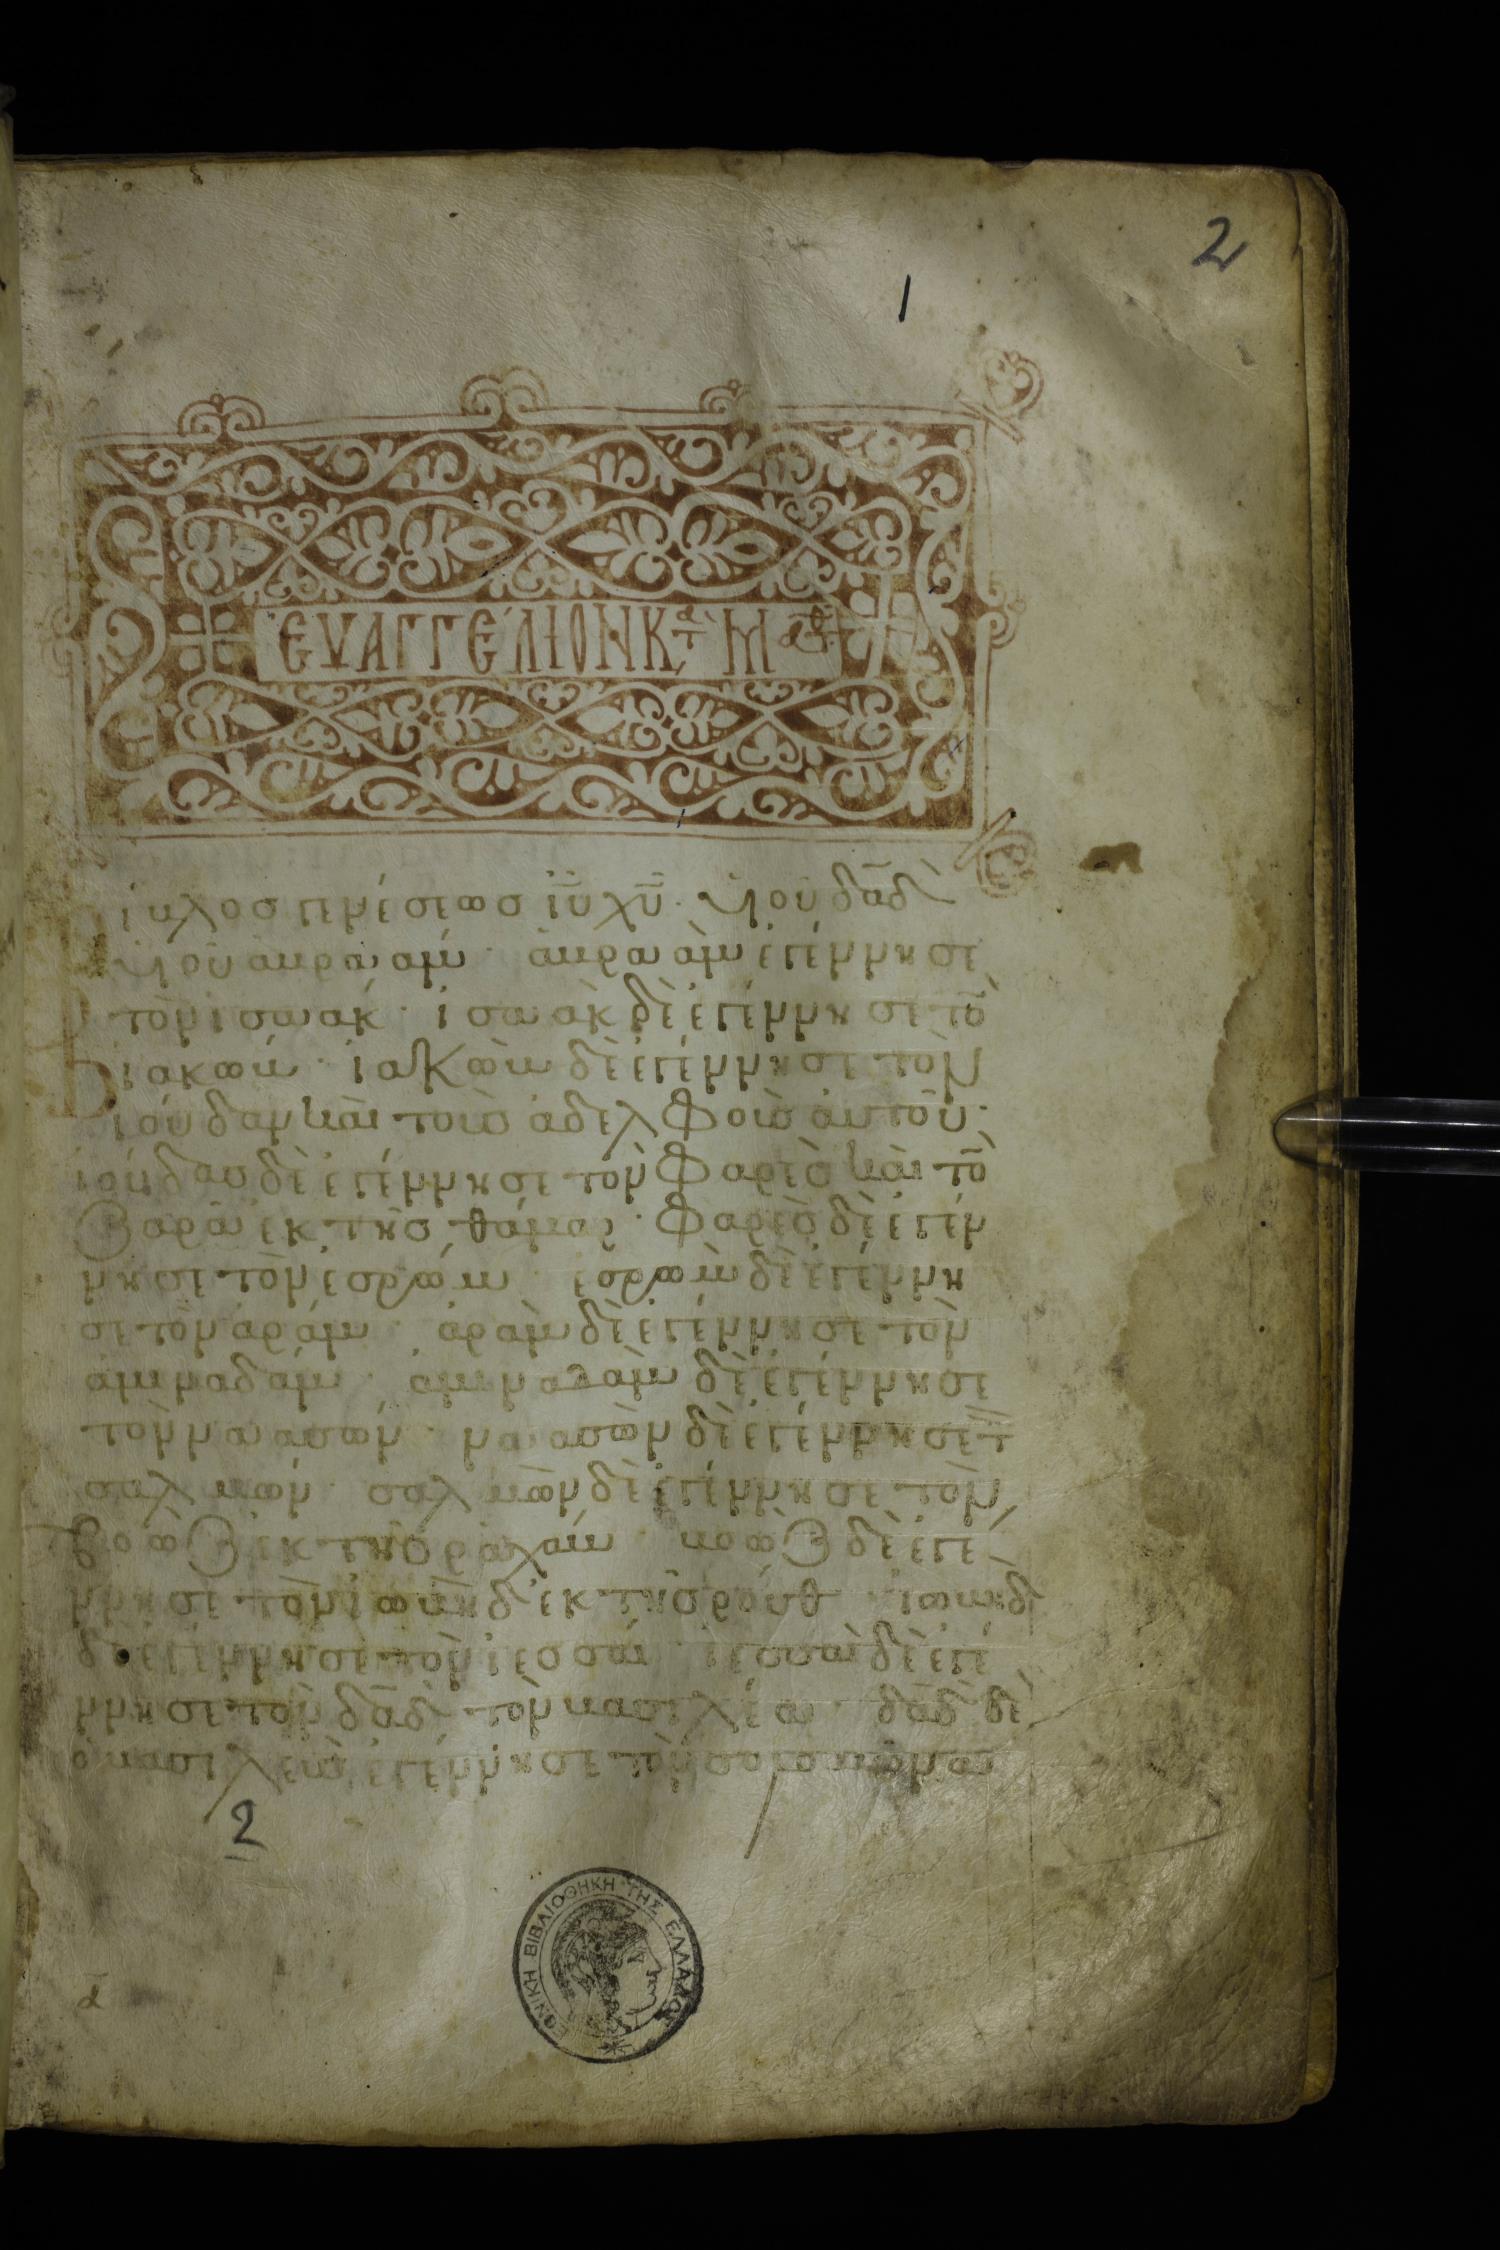 2
1
ΕΥΑΓΓΕΛΙΟΝ Κατ Μ
Βίβλος γενέσεως ιυ χυ. υἱοῦ δαδ
υἱοῦ ἀβραάμ. ἀβραὰμ ἐγέννησε
τὸν ισαάκ. ισαὰκ δὲ ἐγέννησε τὸ
ιακώβ. ιακὼβ δὲ ἐγέννησε τὸν
ιούδαν καὶ τοὺς ἀδελφοὺς αὐτοῦ.
ιούδας δὲ ἐγέννησε τὸν Φαρὲς καὶ τὸ
Ζαρὰ ἐκ τῆς θάμαρ. Φαρὲς δὲ ἐγέν
νησε τὸν ἐσρώμ. ἐσρὼμ δὲ ἐγέννη
σε τὸν ἀράμ. ἀρὰμ δὲ ἐγέννησε τὸν
ἀμιναδάμ. ἀμιναδὰμ δὲ ἐγέννησε
τὸν ναασών. ναασὼν δὲ ἐγέννησε τ
σαλμών. σαλμὼν δὲ ἐγέννησε τὸν
βοὸζ ἐκ τῆς ραχάμ. βοὸζ δὲ ἐγέ
ννησε τὸν ιωβὴδ ἐκ τῆς ρούθ. ιωβὴδ
δὲ ἐγέννησε τὸν ιεσσαί. ιεσσαὶ δὲ ἐγέ
ννησε τὸν δαδ τὸν βασιλέα. δαδ δὲ
ὁ βασιλεὺς ἐγέννησε τὸν σολομῶνα
2
ΕΘΝΙΚΗ ΒΙΒΛΙΟΘΗΚΗ ΤΗΣ ΕΛΛΑΔΟΣ
α